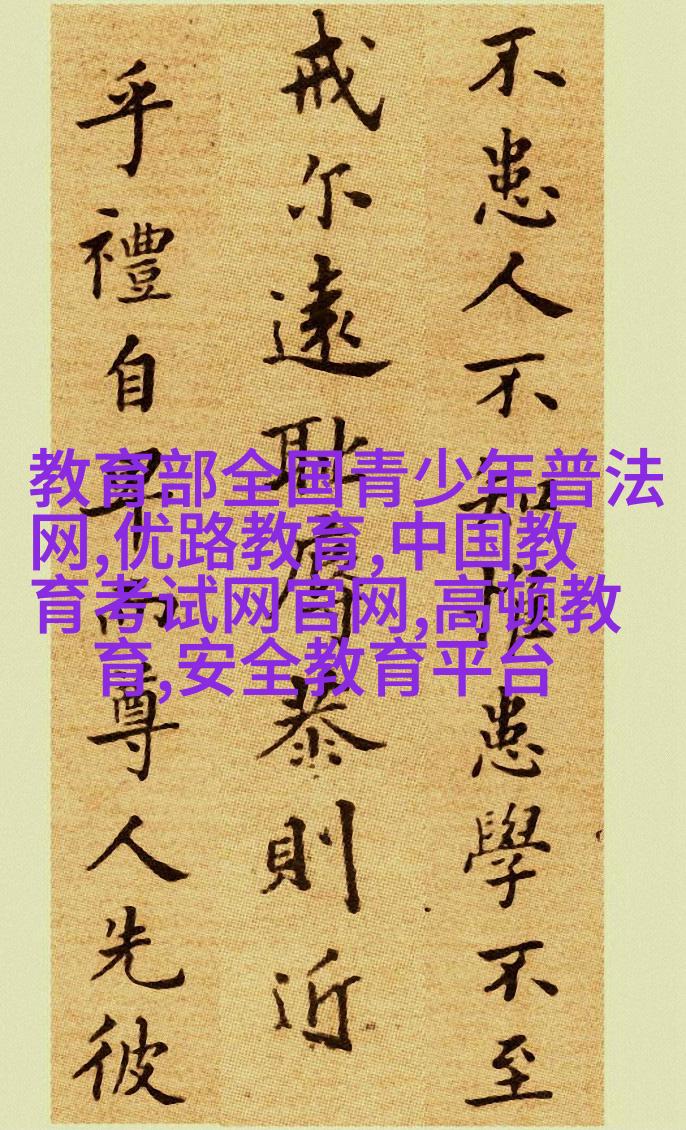 不患人不知惟患學不至
戒尔遠恥辱恭則近
乎禮自卑而尊人先彼
教育部全国青少年普法
网,优路教育,中国教
育考试网官网,高顿教
育,安全教育平台